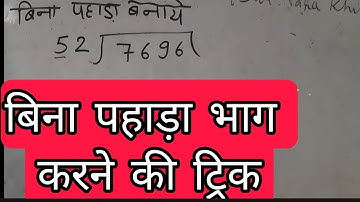 बिना पहाड़ा बनाये
52)7696(
बिना पहाड़ा भाग
करने की ट्रिक